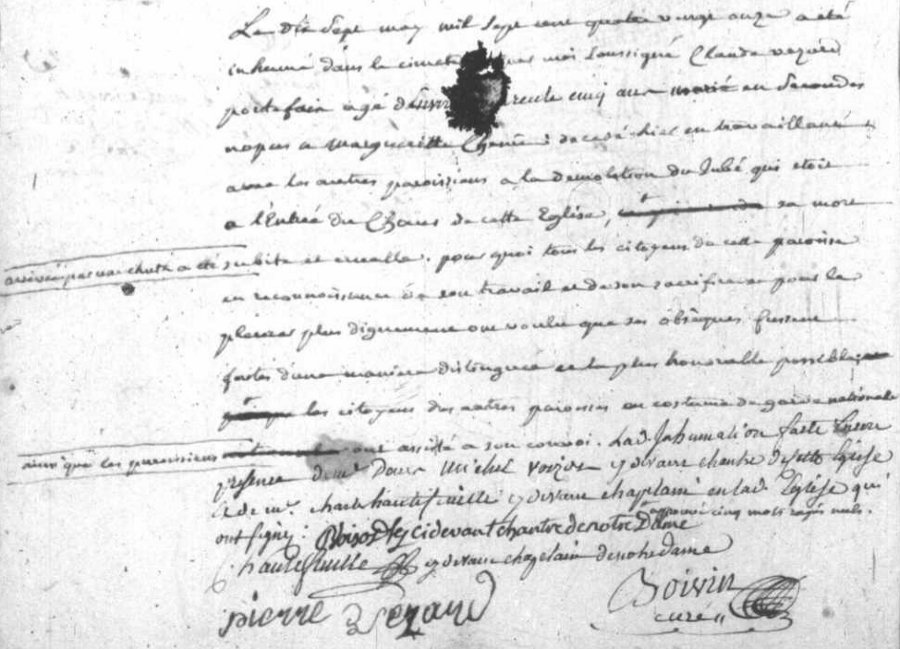 Le dix Sept may mil Sept cent quatre vingt onze a été
inhumé dans le cimet par moi soussigné Claude
portefaix agé d'Environ trente cinq ans marié en Secondes
nopces a Marguerite décédé hier en travaillant
avec les autres paroissiens a la démolition du Jubé qui etoit
a l'Entrée du Chœur de cette Eglise, sa mort
arrivée par une chute a été subite et cruelle. pour quoi tous les citoyens de cette paroisse
en reconnoissance de son travail et de son sacrifice et pour le
pleurer plus dignement ont voulu que ses obsèques fussent
faites d'une maniere distinguée et la plus honorable possible
les citoyens des autres paroisses en costume de garde nationale
ainsi que les paroissiens ont assisté a son convoi. Lad. Inhumation faite En
presence de mr. Michel Voizot cy devant chantre de cette Eglise
et de mr. hautefeuille cy devant chapelain en lad. Eglise qui
ont signé. approuvé cinq mots rayés nuls.
Voizot cy devant chantre de notre Dame
hautefeuille cy devant chapelain de notre dame
pierre
Boivin
curé